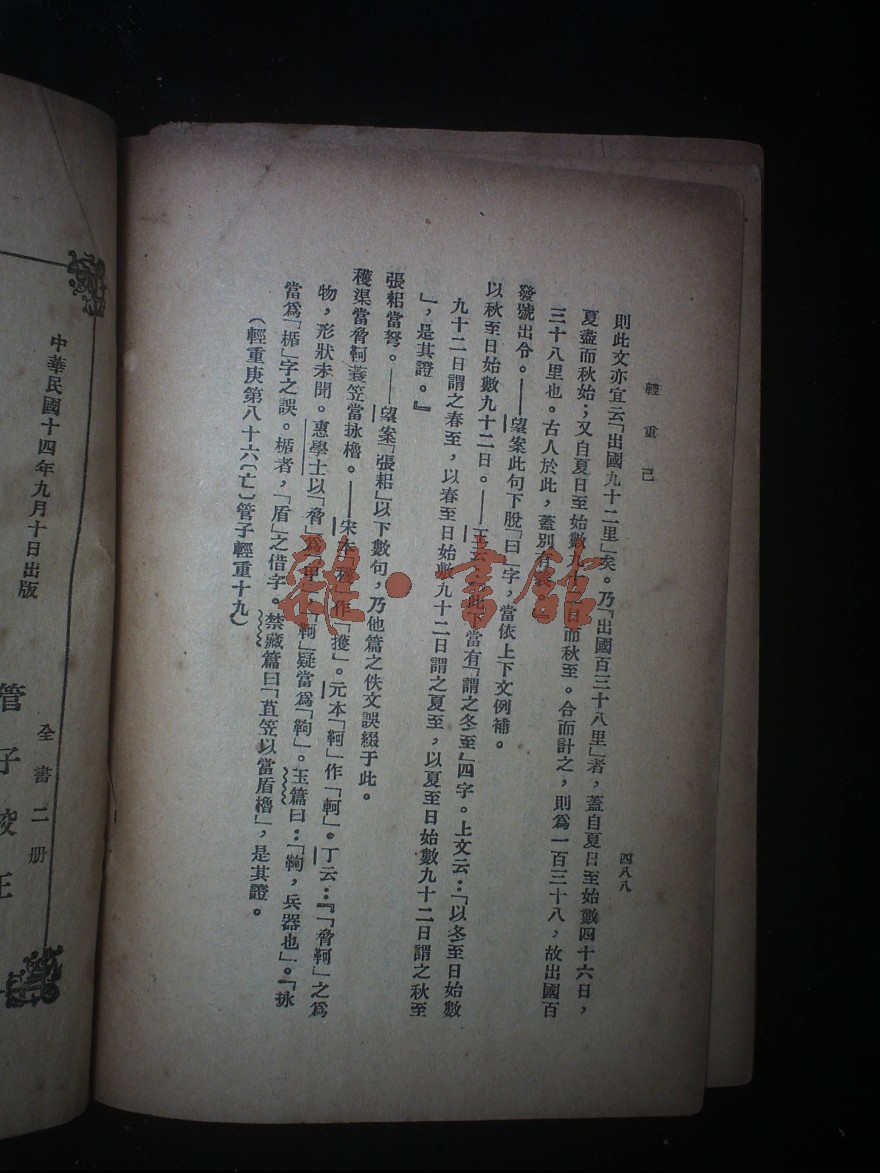 輕重己
四八八
則此文亦宜云「出國九十二里」矣。乃「出國百三十八里」者,蓋自夏日至始數四十六日,
夏盡而秋始;又自夏日至始數九十二日而秋至。合而計之,則爲一百三十八,故出國百
三十八里也。古人於此,蓋別有
發號出令。——望案此句下脫「曰」字,當依上下文例補。
以秋至日始數九十二日。——王云:「此下當有「謂之冬至」四字。上文云:「以冬至日始數
九十二日謂之春至,以春至日始數九十二日謂之夏至,以夏至日始數九十二日謂之秋至
」,是其證。』
張耜當弩。——望案「張耜」以下數句,乃他篇之佚文誤綴于此。
穫渠當脅軻蓑笠當㧒櫓。——宋本「穫」作「擭」。元本「軻」作「軻」。丁云:『「脅軻」之爲
物,形狀未聞。惠學士以「脅」爲「甲」,「軻」疑當爲「䩑」。玉篇曰:「䩑,兵器也」。「㧒
當爲「楯」字之誤。楯者,「盾」之借字。禁藏篇曰「苴笠以當盾櫓」,是其證。
(輕重庚第八十六〔亡〕管子輕重十九)
中華民國十四年九月十日出版
全書二册
管子校正
雜·書館